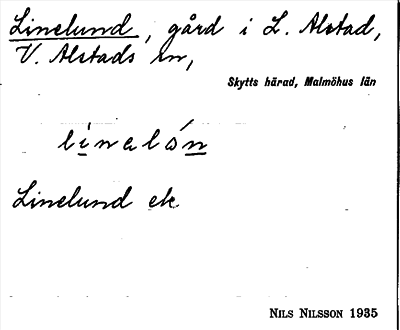 Linelund, gård i L. Alstad,
V. Alstads sn,
Skytts härad, Malmöhus län
línelón
Linelund ek.
NILS NILSSON 1935